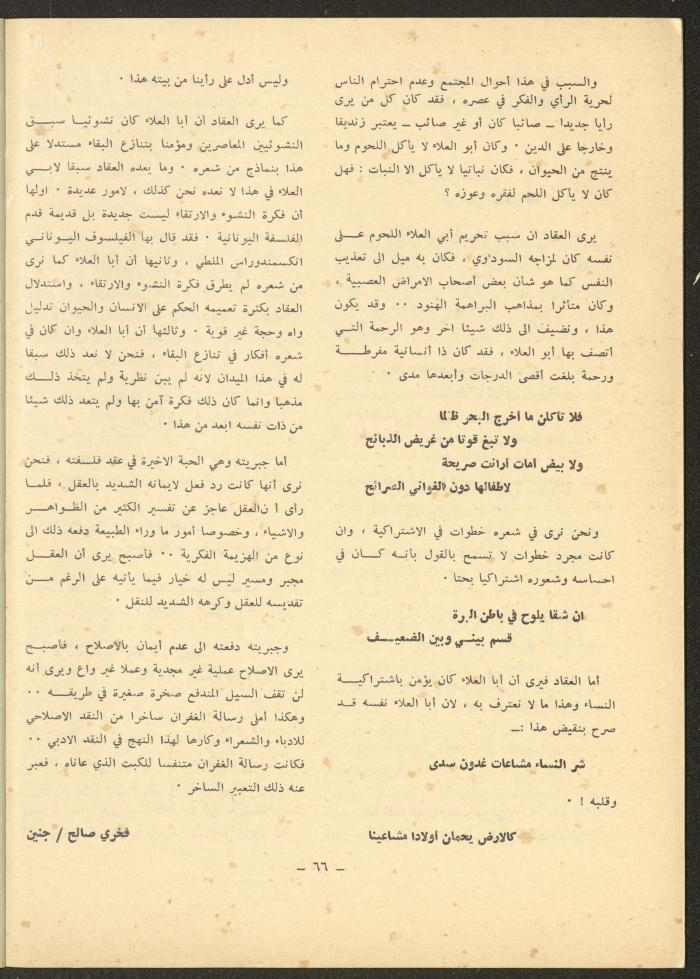 والسبب في هذا أحوال المجتمع وعدم احترام الناس
لحرية الرأي والفكر في عصره ، فقد كان كل من يرى
رأيا جديدا ــ صائبا كان أو غير صائب ــ يعتبر زنديقا
وخارجا على الدين ٠ وكان أبو العلاء لا يأكل اللحوم وما
ينتج من الحيوان ، فكان نباتيا لا يأكل الا النبات : فهل
كان لا يأكل اللحم لفقره وعوزه ؟
يرى العقاد ان سبب تحريم أبي العلاء اللحوم عــلى
نفسه كان لمزاجه السوداوي ، فكان به ميل الى تعذيب
النفس كما هو شأن بعض أصحاب الامراض العصبية ،
وكان متأثرا بمذاهب البراهمة الهنود ٠٠ وقد يكون
هذا ، ونضيف الى ذلك شيئا اخر وهو الرحمة التــي
أتصف بها أبو العلاء ، فقد كان ذا أنسانية مفرطــة
ورحمة بلغت أقصى الدرجات وأبعدها مدى ٠
فلا تأكلن ما أخرج البحر ظالما
ولا تبغ قوتا من غريض الذبائح
ولا بيض أمات أرانت صريحة
لاطفالها دون الغواني الصرائح
ونحن نرى في شعره خطوات في الاشتراكية ، وان
كانت مجرد خطوات لا تسمح بالقول بأنــه كــان في
احساسه وشعوره اشتراكيا بحتا ٠
ان شقا يلوح في باطن البرة
قسم بينــي وبين الضعيــف
أما العقاد فيرى أن أبا العلاء كان يؤمن باشتراكيــة
النساء وهذا ما لا نعترف به ، لان أبا العلاء نفسه قــد
صرح بنقيض هذا :ــ
شر النساء مشاعات غدون سدى
وقلبه ! ٠
كالارض يحمان أولادا مشاعينا
وليس أدل على رأينا من بيته هذا ٠
كما يرى العقاد أن أبا العلاء كان نشوئيــا سبــق
النشوئيين المعاصرين ومؤمنا بتنازع البقاء مستدلا على
هذا بنماذج من شعره ٠ وما يعده العقاد سبقا لابــي
العلاء في هذا لا نعده نحن كذلك ، لامور عديدة ٠ اولها
أن فكرة النشوء والارتقاء ليست جديدة بل قديمة قدم
الفلسفة اليونانية ٠ فقد قال بها الفيلسوف اليــونانــي
انكسمندوراس الملطي ، وثانيها أن أبا العلاء كما نرى
من شعره لم يطرق فكرة النشوء والارتقاء ، واستدلال
العقاد بكثرة تعميمه الحكم على الانسان والحيوان تدليل
واه وحجة غير قوية ٠ وثالثها أن أبا العلاء وان كان في
شعره أفكار في تنازع البقاء ، فنحن لا نعد ذلك سبقا
له في هذا الميدان لانه لم يبن نظرية ولم يتخذ ذلــك
مذهبا وانما كان ذلك فكرة آمن بها ولم يتعد ذلك شيئا
من ذات نفسه ابعد من هذا ٠
أما جبريته وهي الحبة الاخيرة في عقد فلسفته ، فنحن
نرى أنها كانت رد فعل لايمانه الشديد بالعقل ، فلمــا
رأى أ نالعقل عاجز عن تفسير الكثير من الظــواهــر
والاشياء ، وخصوصا أمور ما وراء الطبيعة دفعه ذلك الى
نوع من الهزيمة الفكرية ٠٠ فأصبح يرى أن العقــل
مجبر ومسير ليس له خيار فيما يأتيه على الرغم مــن
تقديسه للعقل وكرهه الشديد للنقل ٠
وجبريته دفعته الى عدم أيمان بالاصلاح ، فأصبــح
يرى الاصلاح عملية غير مجدية وعملا غير واع ويرى أنه
لن تقف السيل المندفع صخرة صغيرة في طريقــه ٠٠
وهكذا أملى رسالة الغفران ساخرا من النقد الاصلاحي
للادباء والشعراء وكارها لهذا النهج في النقد الادبي ٠٠
فكانت رسالة الغفران متنفسا للكبت الذي عاناه ، فعبر
عنه ذلك التعبير الساخر ٠
فخري صالح / جنين
ــ ٦٦ ــ